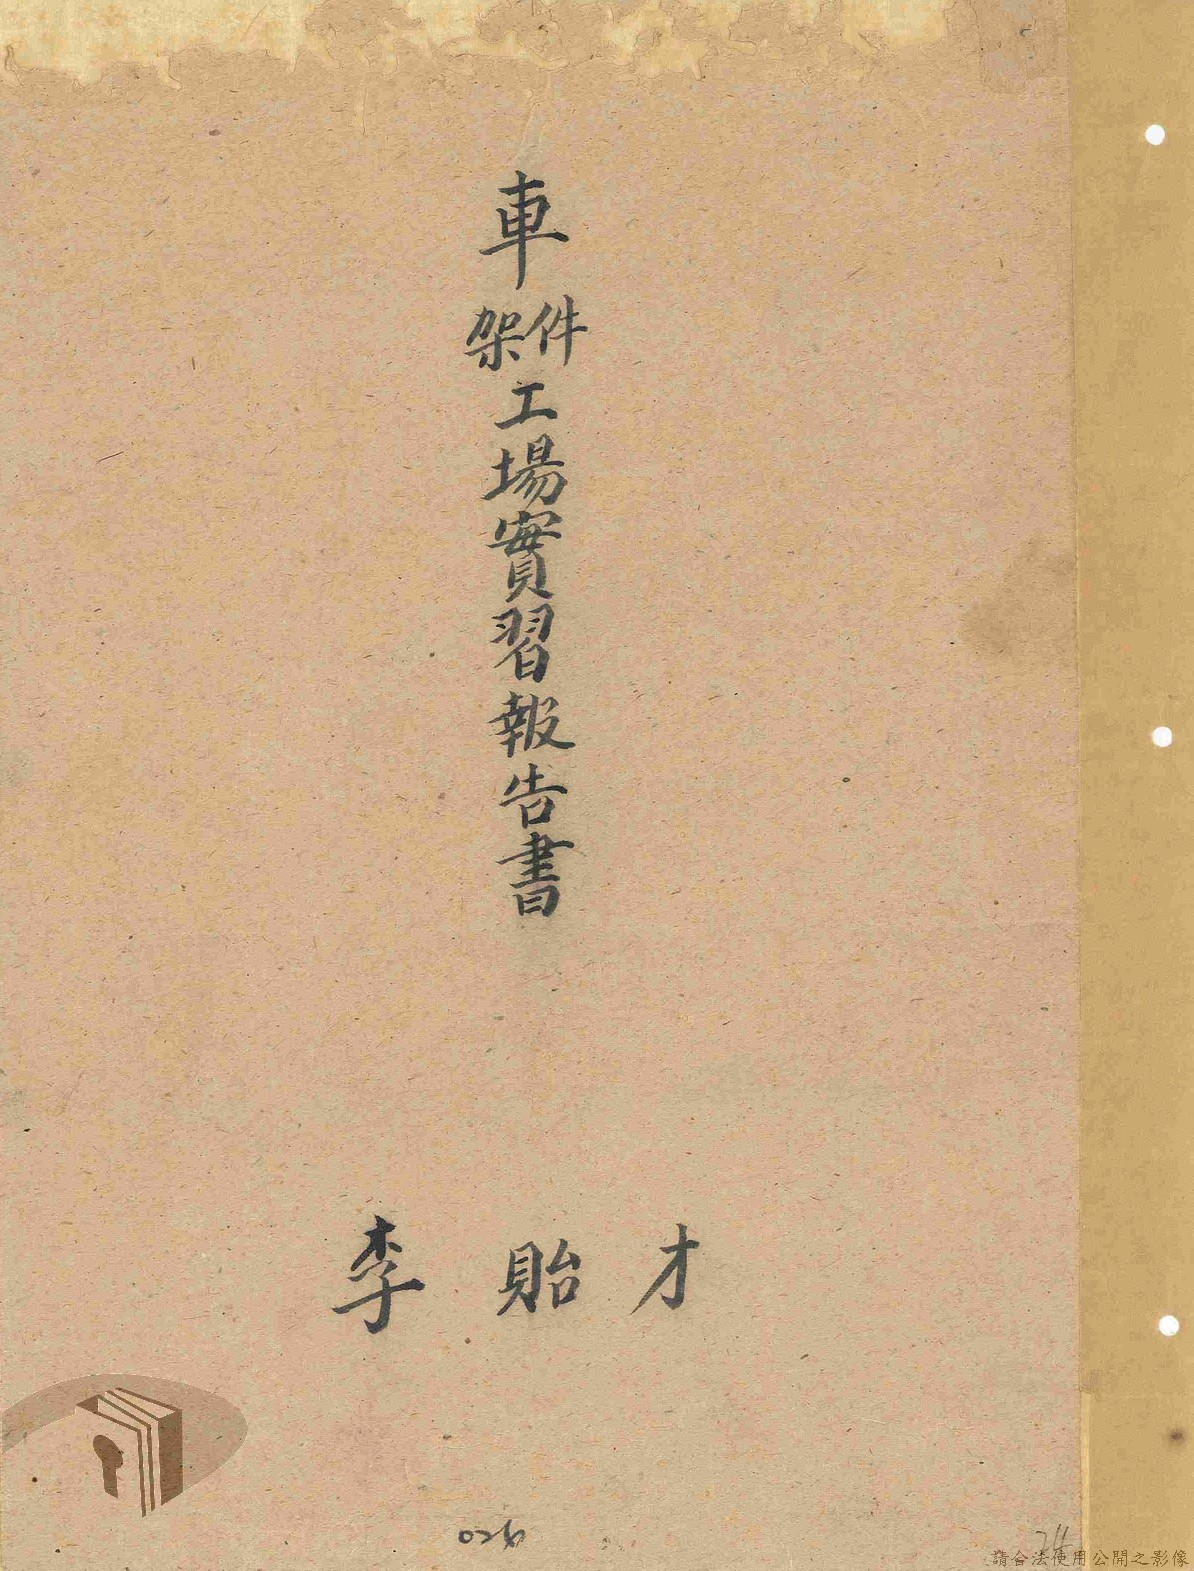 車
架件
工場實習報告書
李 貽 才
請合法使用公開之影像